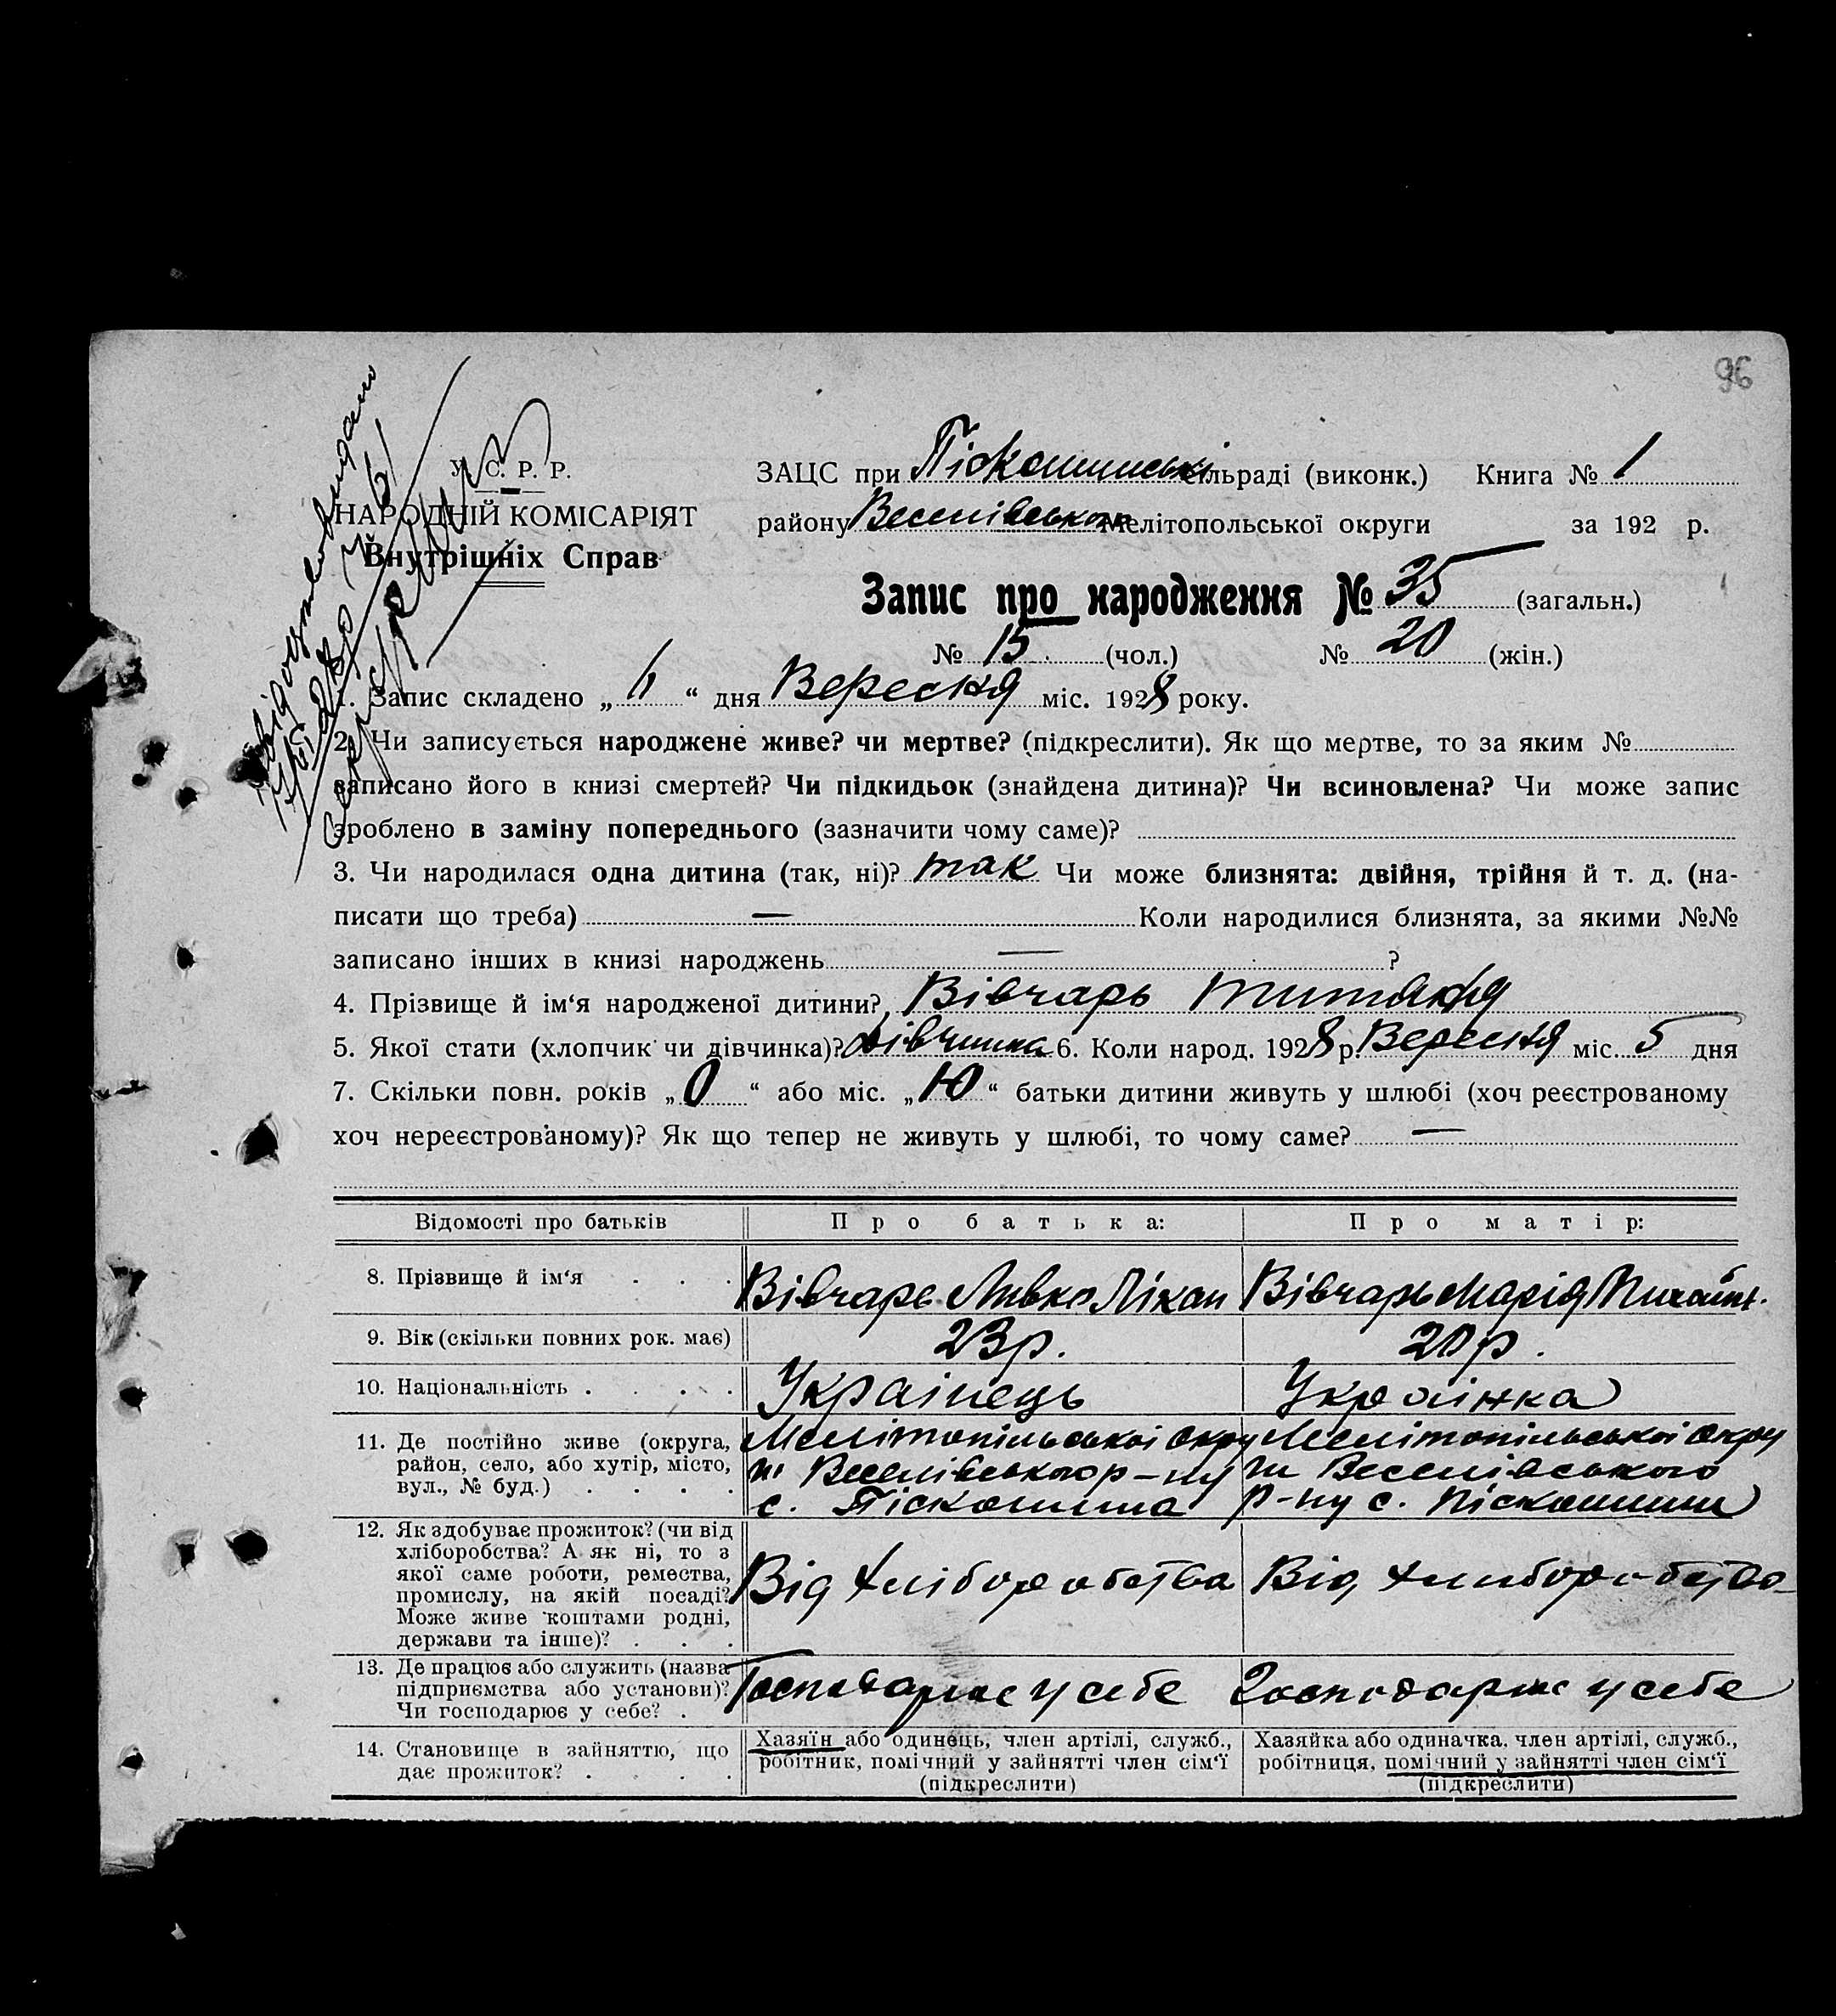 96
У. С. Р. Р.
НАРОДНІЙ КОМІСАРІЯТ
Внутрішніх Справ
ЗАЦС при Піскошинські сільраді (виконк.) Книга № 1
району Веселівського Мелітопольської округи за 192 р.
Запис про народження № 35 (загальн.)
№ 15 (чол.) № 20 (жін.)
1. Запис складено „ 6 “ дня Вересня міс. 1928 року.
2. Чи записується народжене живе? чи мертве? (підкреслити). Як що мертве, то за яким №
записано його в книзі смертей? Чи підкидьок (знайдена дитина)? Чи всиновлена? Чи може запис
зроблено в заміну попереднього (зазначити чому саме)?
3. Чи народилася одна дитина (так, ні)? так Чи може близнята: двійня, трійня й т. д. (на-
писати що треба) — Коли народилися близнята, за якими №№
записано інших в книзі народжень — ?
4. Прізвище й ім‘я народженої дитини? Вівчарь
5. Якої стати (хлопчик чи дівчинка)? Дівчинка 6. Коли народ. 1928 р. Вересня міс. 5 дня
7. Скільки повн. років „ 0 “ або міс. „ 10 “ батьки дитини живуть у шлюбі (хоч реєстрованому
хоч нереєстрованому)? Як що тепер не живуть у шлюбі, то чому саме? —
Відомості про батьків
Про батька:
Про матір:
8. Прізвище й ім‘я . . .
Вівчарь
Вівчарь Марія
9. Вік (скільки повних рок. має)
23 р.
20 р.
10. Національність . . . .
Українець
Українка
11. Де постійно живе (округа,
район, село, або хутір, місто,
вул., № буд.) . . . .
Мелітопільської Окру
ги Веселівського р-ну
с. Піскошина
Мелітопільської Окру
ги Веселівського
р-ну с. Піскошини
12. Як здобуває прожиток? (чи від
хліборобства? А як ні, то з
якої саме роботи, ремества,
промислу, на якій посаді?
Може живе коштами родні,
держави та інше)? . . .
Від хліборобства
Від хлиборобства
13. Де працює або служить (назва
підприємства або установи)?
Чи господарює у себе? .
Господарює у себе
Господарює у себе
14. Становище в зайняттю, що
дає прожиток? . . . .
Хазяїн або одинець, член артілі, служб.,
робітник, помічний у зайнятті член сім‘ї
(підкреслити)
Хазяйка або одиначка, член артілі, служб.,
робітниця, помічний у зайнятті член сім‘ї
(підкреслити)